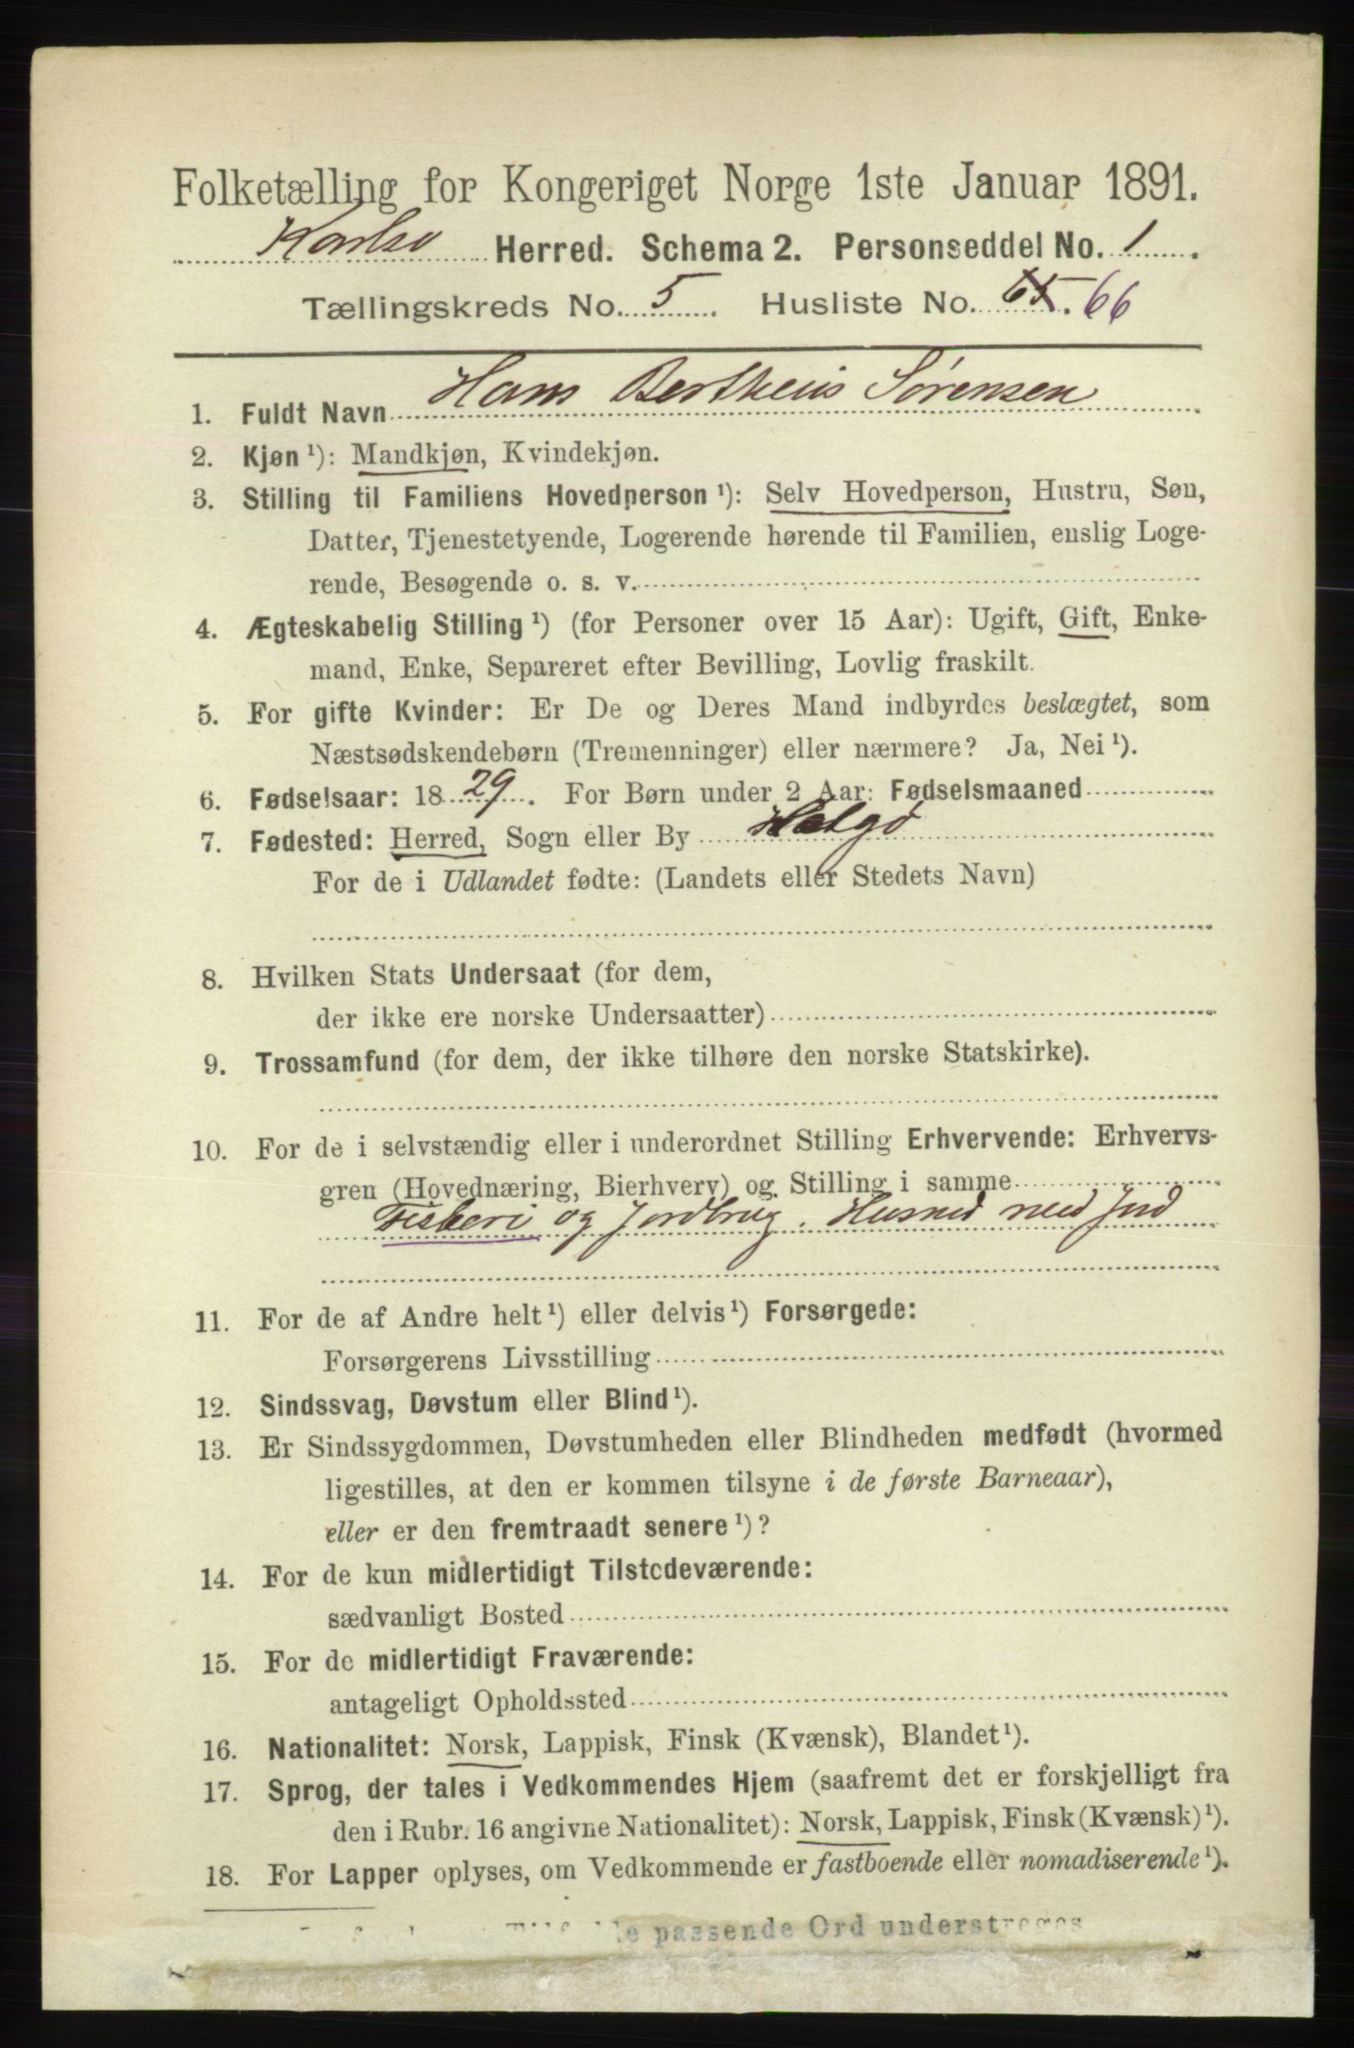 Folketælling for Kongeriget Norge 1ste Januar 1891.
Karlsø Herred. Schema 2. Personseddel No. 1
Tællingskreds No. 5 Husliste No. 65. 66
1. Fuldt Navn Hans Bertheus Sørensen
2. Kjøn ¹): Mandkjøn, Kvindekjøn.
3. Stilling til Familiens Hovedperson ¹): Selv Hovedperson, Hustru, Søn,
Datter, Tjenestetyende, Logerende hørende til Familien, enslig Loge-
rende, Besøgende o. s. v.
4. Ægteskabelig Stilling ¹) (for Personer over 15 Aar): Ugift, Gift, Enke-
mand, Enke, Separeret efter Bevilling, Lovlig fraskilt.
5. For gifte Kvinder: Er De og Deres Mand indbyrdes beslægtet, som
Næstsødskendebørn (Tremenninger) eller nærmere? Ja, Nei ¹).
6. Fødselsaar: 1829. For Børn under 2 Aar: Fødselsmaaned
7. Fødested: Herred, Sogn eller By Helgø
For de i Udlandet fødte: (Landets eller Stedets Navn)
8. Hvilken Stats Undersaat (for dem,
der ikke ere norske Undersaatter)
9. Trossamfund (for dem, der ikke tilhøre den norske Statskirke).
10. For de i selvstændig eller i underordnet Stilling Erhvervende: Erhvervs-
gren (Hovednæring, Bierhverv) og Stilling i samme
Fiskeri og Jordbrug. Husmd med Jord
11. For de af Andre helt ¹) eller delvis ¹) Forsørgede:
Forsørgerens Livsstilling
12. Sindssvag, Døvstum eller Blind ¹).
13. Er Sindssygdommen, Døvstumheden eller Blindheden medfødt (hvormed
ligestilles, at den er kommen tilsyne i de første Barneaar),
eller er den fremtraadt senere ¹)?
14. For de kun midlertidigt Tilstedeværende:
sædvanligt Bosted
15. For de midlertidigt Fraværende:
antageligt Opholdssted
16. Nationalitet: Norsk, Lappisk, Finsk (Kvænsk), Blandet ¹).
17. Sprog, der tales i Vedkommendes Hjem (saafremt det er forskjelligt fra
den i Rubr. 16 angivne Nationalitet): Norsk, Lappisk, Finsk (Kvænsk) ¹).
18. For Lapper oplyses, om Vedkommende er fastboende eller nomadiserende ¹).
passende Ord understreges